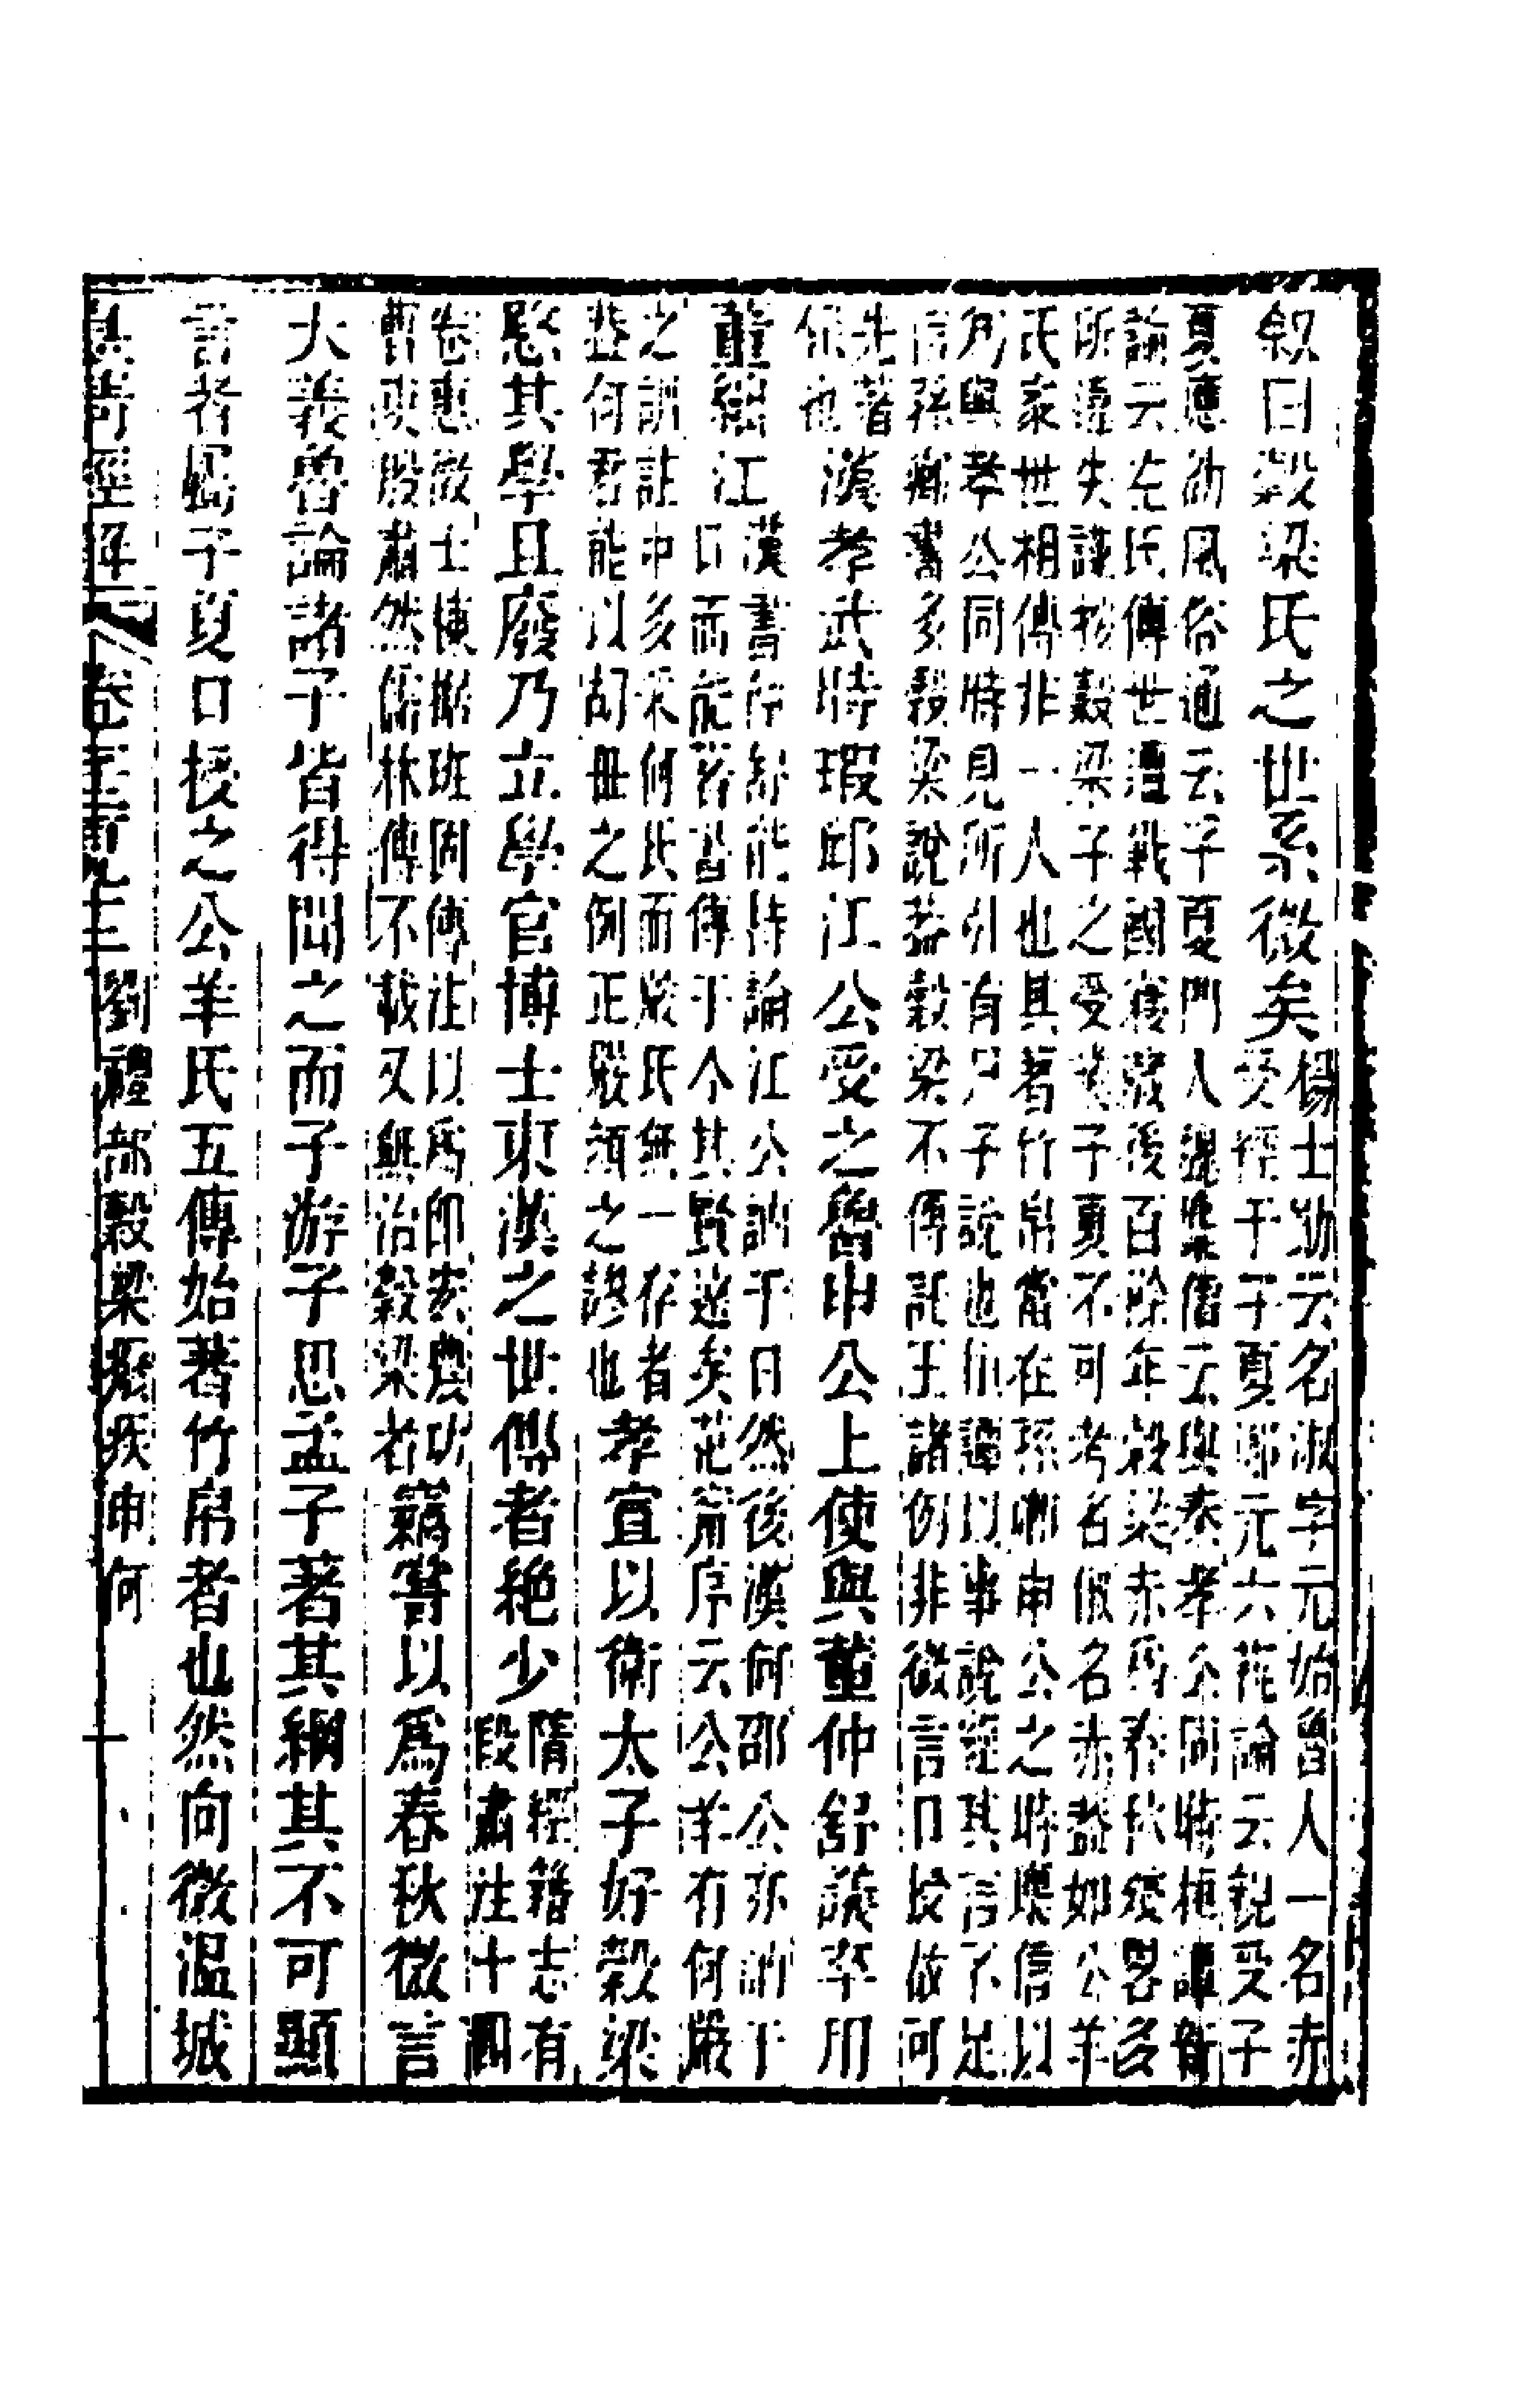 敘曰穀梁氏之世系微矣楊士勛云名淑字元始魯人一名赤
受經于子夏鄭元六蓺論云親受子
夏應劭風俗通云子夏門人魏麋信云與秦孝公同時桓譚新
論云左氏傳世遭戰國寖藏後百餘年穀梁赤爲春秋殘畧多
所遺失謹按穀梁子之受業子夏不可考名俶名赤葢如公羊
氏家世相傳非一人也其著竹帛當在孫卿申公之時麋信以
爲與孝公同時見所引有尸子說也桓譚以事說經其言不足
信孫卿書多穀梁說葢穀梁不傳託王諸例非微言口授故可
先著
帛也漢孝武時瑕邱江公受之魯申公上使與董仲舒議卒用
董絀江漢書仲舒能持論江公訥于口然後漢何邵公亦訥于
口而能著書傳于今其賢遠矣范甯序云公羊有何嚴
之訓註中多采何氏而嚴氏無一存者
茲何君能以胡毋之例正嚴顏之謬也孝宣以衛太子好穀梁
愍其學且廢乃立學官博士東漢之世傳者絕少隋經籍志有
段肅注十四
卷惠徵士棟據班固傳注以爲即宏農功
曹史殷肅然儒林傳不載又無治穀梁者竊嘗以爲春秋微言
大義魯論諸子皆得聞之而子游子思孟子著其綱其不可顯
言者屬子夏口授之公羊氏五傳始著竹帛者也然向微溫城
皇清經解 卷 劉禮部穀梁廢疾申何 一